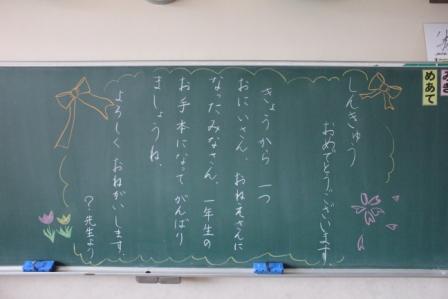 しんきゅう
おめでとうございます。
きょうから　一つ
おにいさん、おねえさんに
なったみなさん。一年生の
お手本になって がんばり
ましょうね。
よろしく おねがいします。
？先生より
めあて